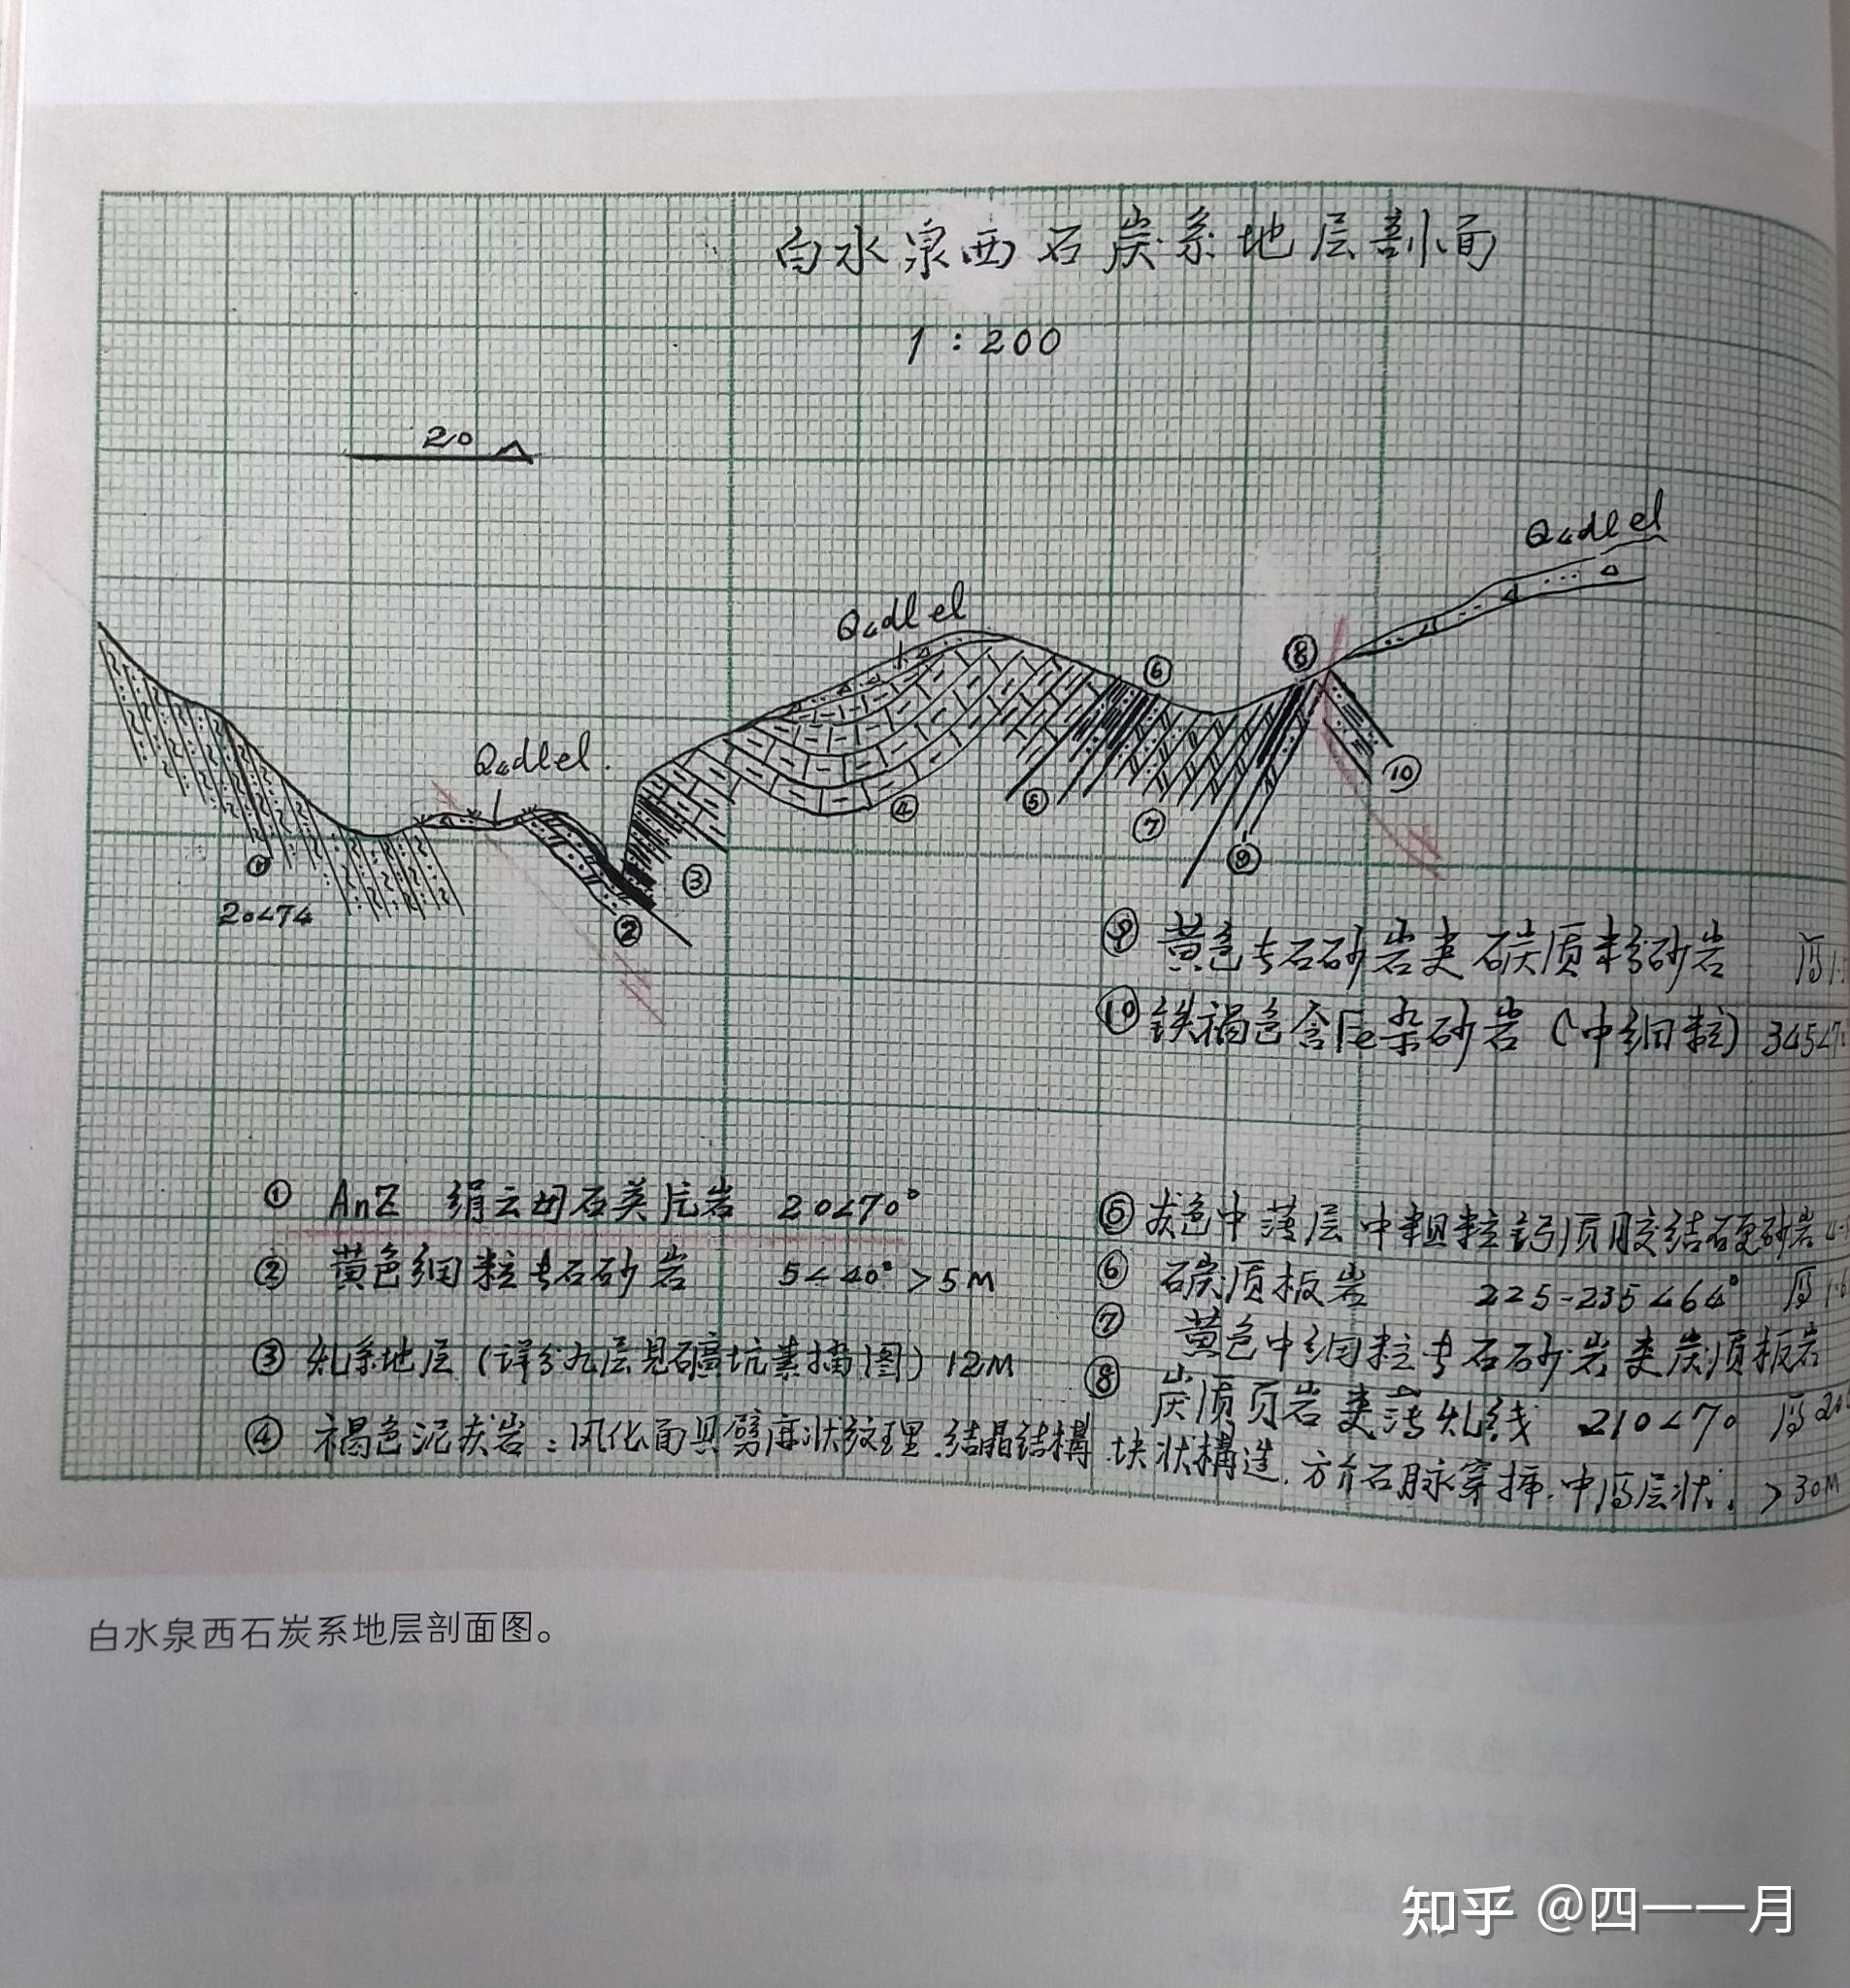 白水泉西石炭系地层剖面
1:200
20
Q₄dlel
Q₄dlel
⑥
⑧
Q₄dlel.
⑩
⑤
④
⑦
①
⑨
③
20∠74
②
⑨ 黄色长石砂岩夹碳质粉砂岩 厚1.
⑩ 铁褐色含Fe杂砂岩(中细粒) 345∠7
① AnZ 绢云母石英片岩 20∠70°
② 黄色细粒长石砂岩 5∠40° >5M
③ 轧系地层(详分九层见矿坑素描图) 12M
④ 褐色泥灰岩:风化面具劈麻状纹理.结晶结構.块状構造.方介石脉穿插.中厚层状. >30M
⑤ 灰色中薄层中粗粒钙质胶结硬砂岩
⑥ 碳质板岩 225-235∠64° 厚1.6
⑦ 黄色中细粒长石砂岩夹炭质板岩
⑧ 炭质页岩夹薄轧线 210∠70 厚
白水泉西石炭系地层剖面图。
知乎 @四一一月